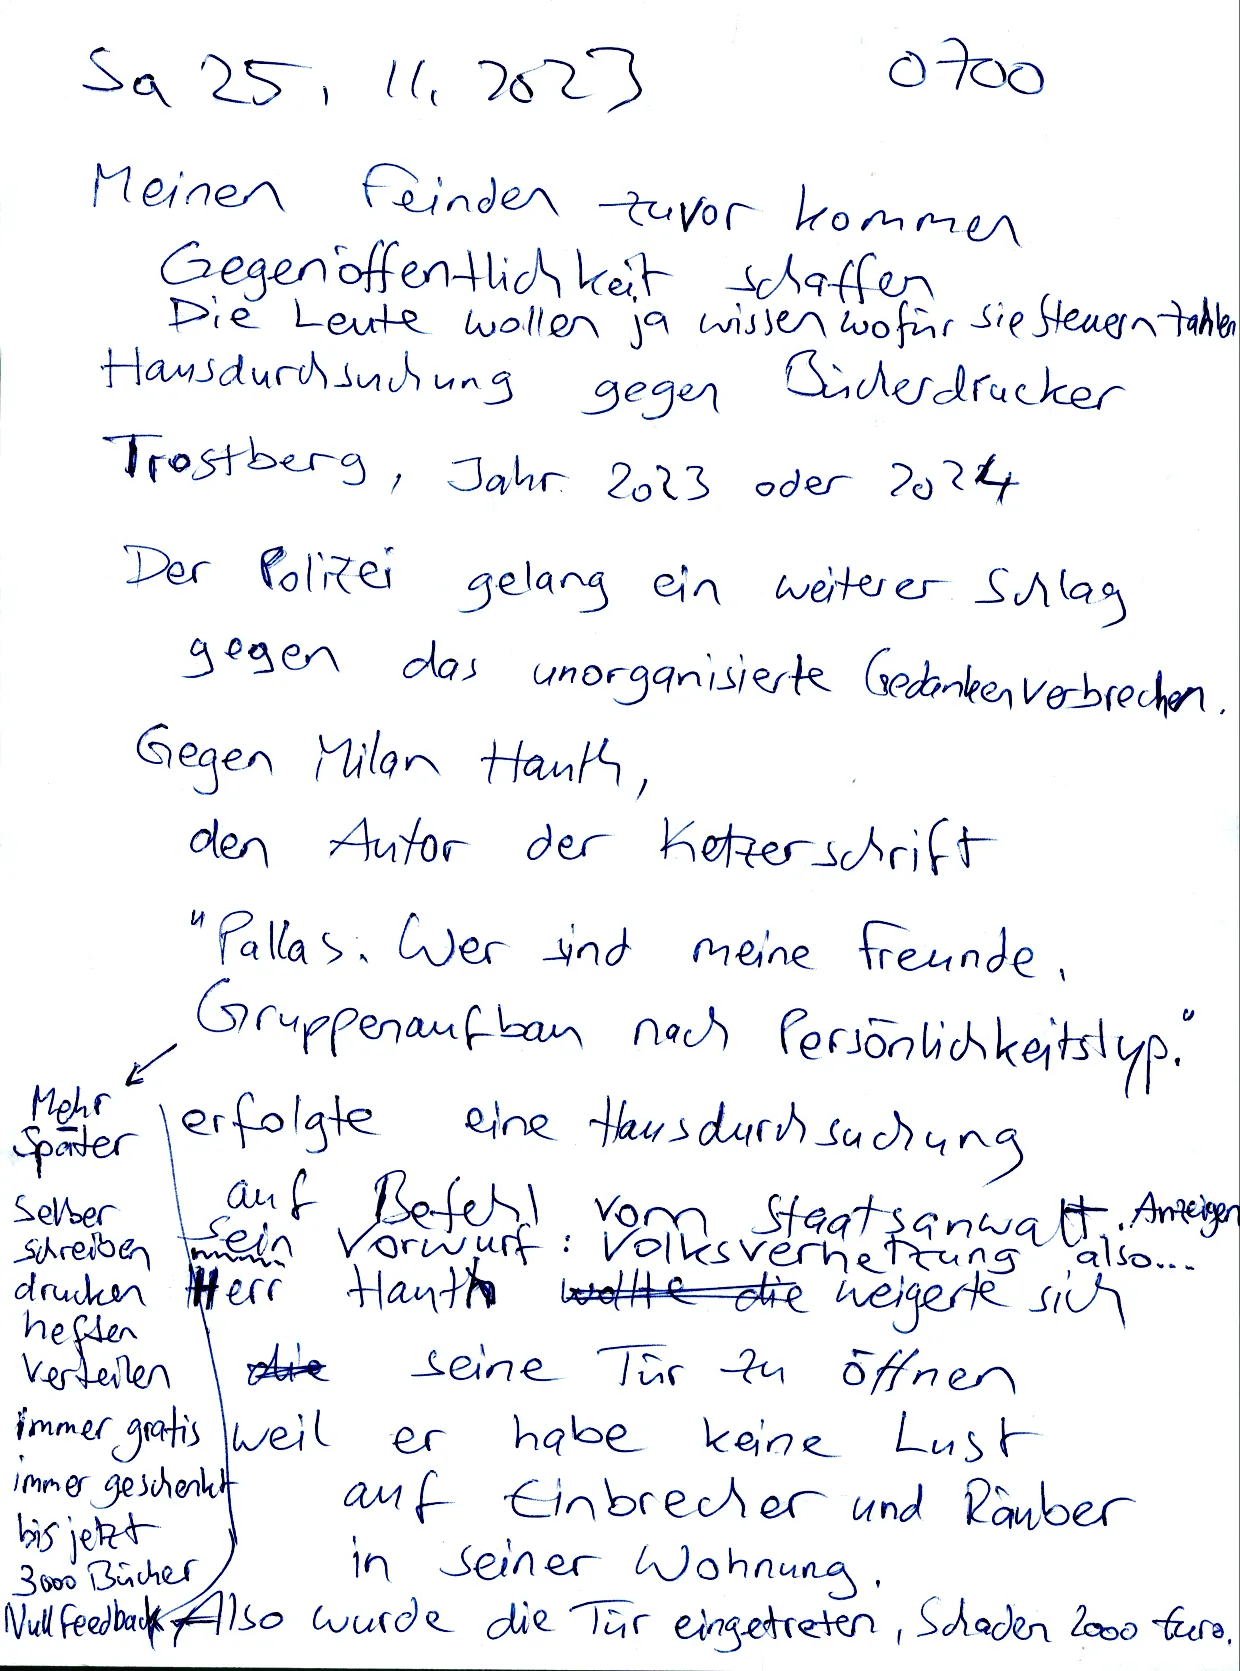 Sa 25. 11. 2023 0700
Meinen Feinden zuvor kommen
Gegenöffentlichkeit schaffen
Die Leute wollen ja wissen wofür sie Steuern zahlen
Hausdurchsuchung gegen Bücherdrucker
Trostberg, Jahr 2023 oder 2024
Der Polizei gelang ein weiterer Schlag
gegen das unorganisierte Gedankenverbrechen.
Gegen Milan Hauth,
den Autor der Ketzerschrift
"Pallas. Wer sind meine Freunde.
Gruppenaufbau nach Persönlichkeitstyp."
erfolgte eine Hausdurchsuchung
auf Befehl vom Staatsanwalt. Anzeigen
sein Vorwurf: Volksverhetzung also...
Herr Hauth wollte die weigerte sich
die seine Tür zu öffnen
weil er habe keine Lust
auf Einbrecher und Räuber
in seiner Wohnung.
Also wurde die Tür eingetreten, Schaden 2000 Euro.
Mehr
Später
Selber
schreiben
drucken
heften
verteilen
immer gratis
immer geschenkt
bis jetzt
3000 Bücher
Null Feedback